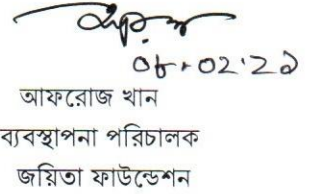 ০৮.০২.২১
আফরোজ খান
ব্যবস্থাপনা পরিচালক
জয়িতা ফাউন্ডেশন